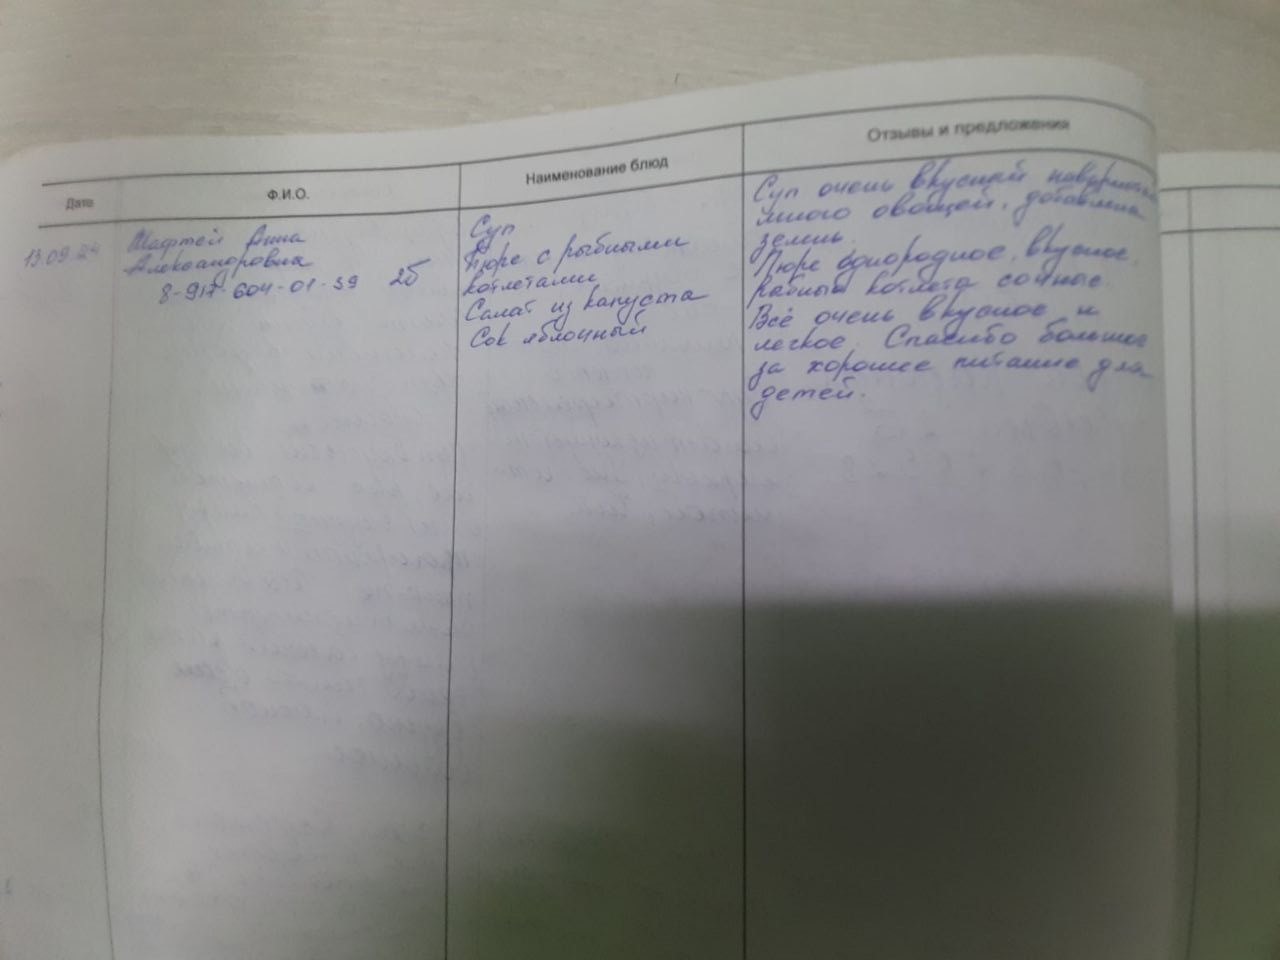 Дата
Ф.И.О.
Наименование блюд
Отзывы и предложения
13.09.24
Анна
Александровна
8-917-604-01-39 2б
Суп
Пюре с рыбными
котлетами
Салат из капуста
Сок яблочный
Суп очень вкусный
много овощей, добавлена
зелень.
Пюре однородное, вкусное,
рыбный котлета сочные.
Всё очень вкусное и
легкое. Спасибо большое
за хорошее питание для
детей.